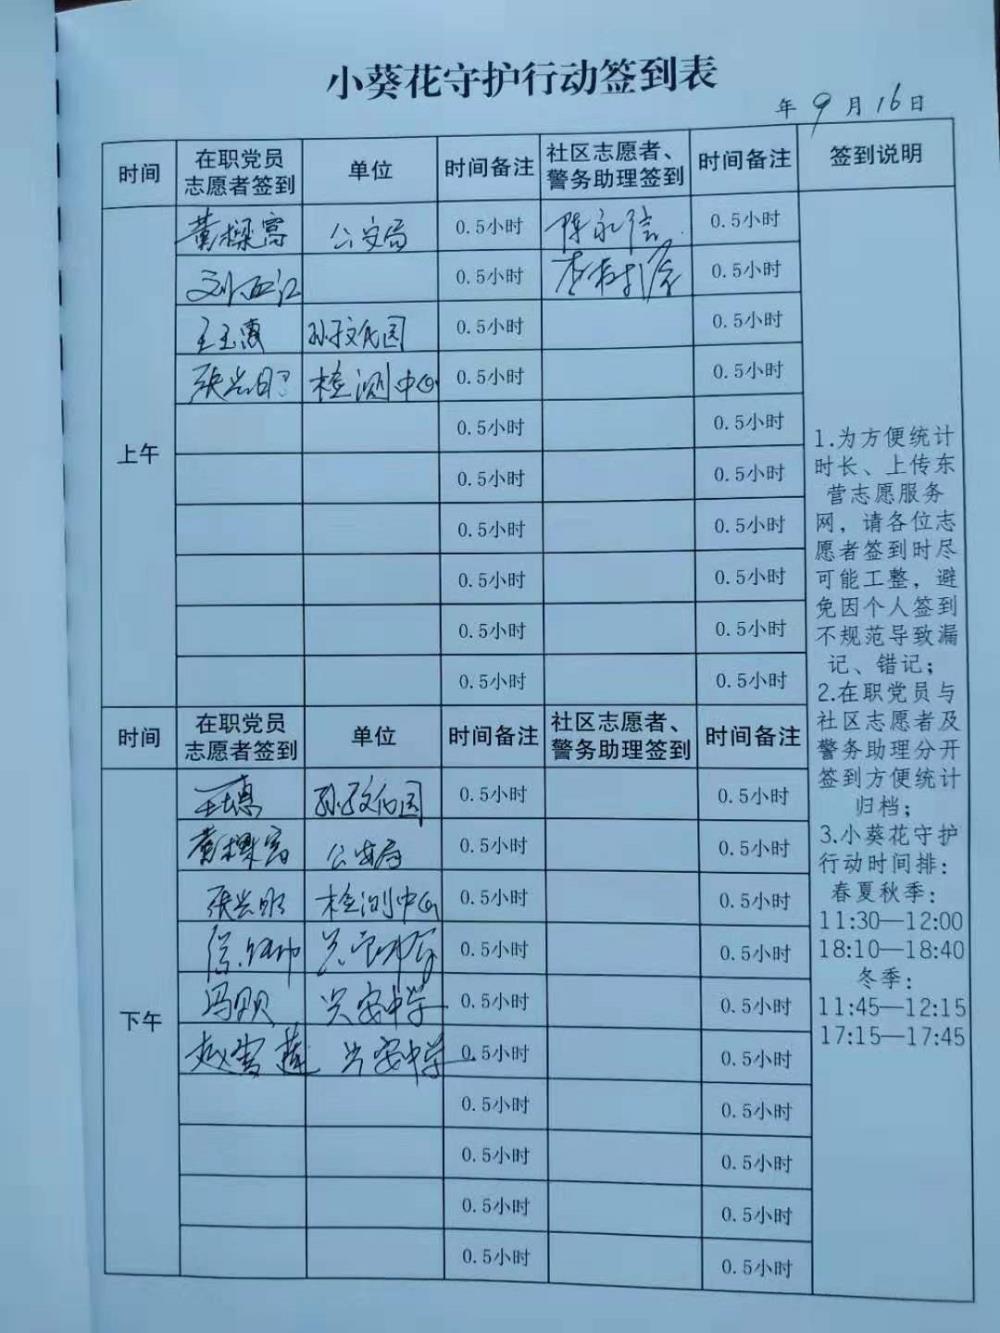 小葵花守护行动签到表
年 9 月 16 日
时间 在职党员志愿者签到 单位 时间备注 社区志愿者、警务助理签到 时间备注 签到说明
上午
黄樑富 公安局 0.5小时 陈永信 0.5小时
0.5小时 0.5小时
王玉惠 孙子文化园 0.5小时 0.5小时
张兴明 检测中心 0.5小时 0.5小时
0.5小时 0.5小时
0.5小时 0.5小时
0.5小时 0.5小时
0.5小时 0.5小时
0.5小时 0.5小时
0.5小时 0.5小时
时间 在职党员志愿者签到 单位 时间备注 社区志愿者、警务助理签到 时间备注
下午
王玉惠 孙子文化园 0.5小时 0.5小时
黄樑富 公安局 0.5小时 0.5小时
张兴明 检测中心 0.5小时 0.5小时
0.5小时 0.5小时
冯贝贝 兴安中学 0.5小时 0.5小时
赵雪莲 兴安中学 0.5小时 0.5小时
0.5小时 0.5小时
0.5小时 0.5小时
0.5小时 0.5小时
0.5小时 0.5小时
1.为方便统计
时长、上传东
营志愿服务
网，请各位志
愿者签到时尽
可能工整，避
免因个人签到
不规范导致漏
记、错记；
2.在职党员与
社区志愿者及
警务助理分开
签到方便统计
归档；
3.小葵花守护
行动时间排：
春夏秋季：
11:30—12:00
18:10—18:40
冬季：
11:45—12:15
17:15—17:45